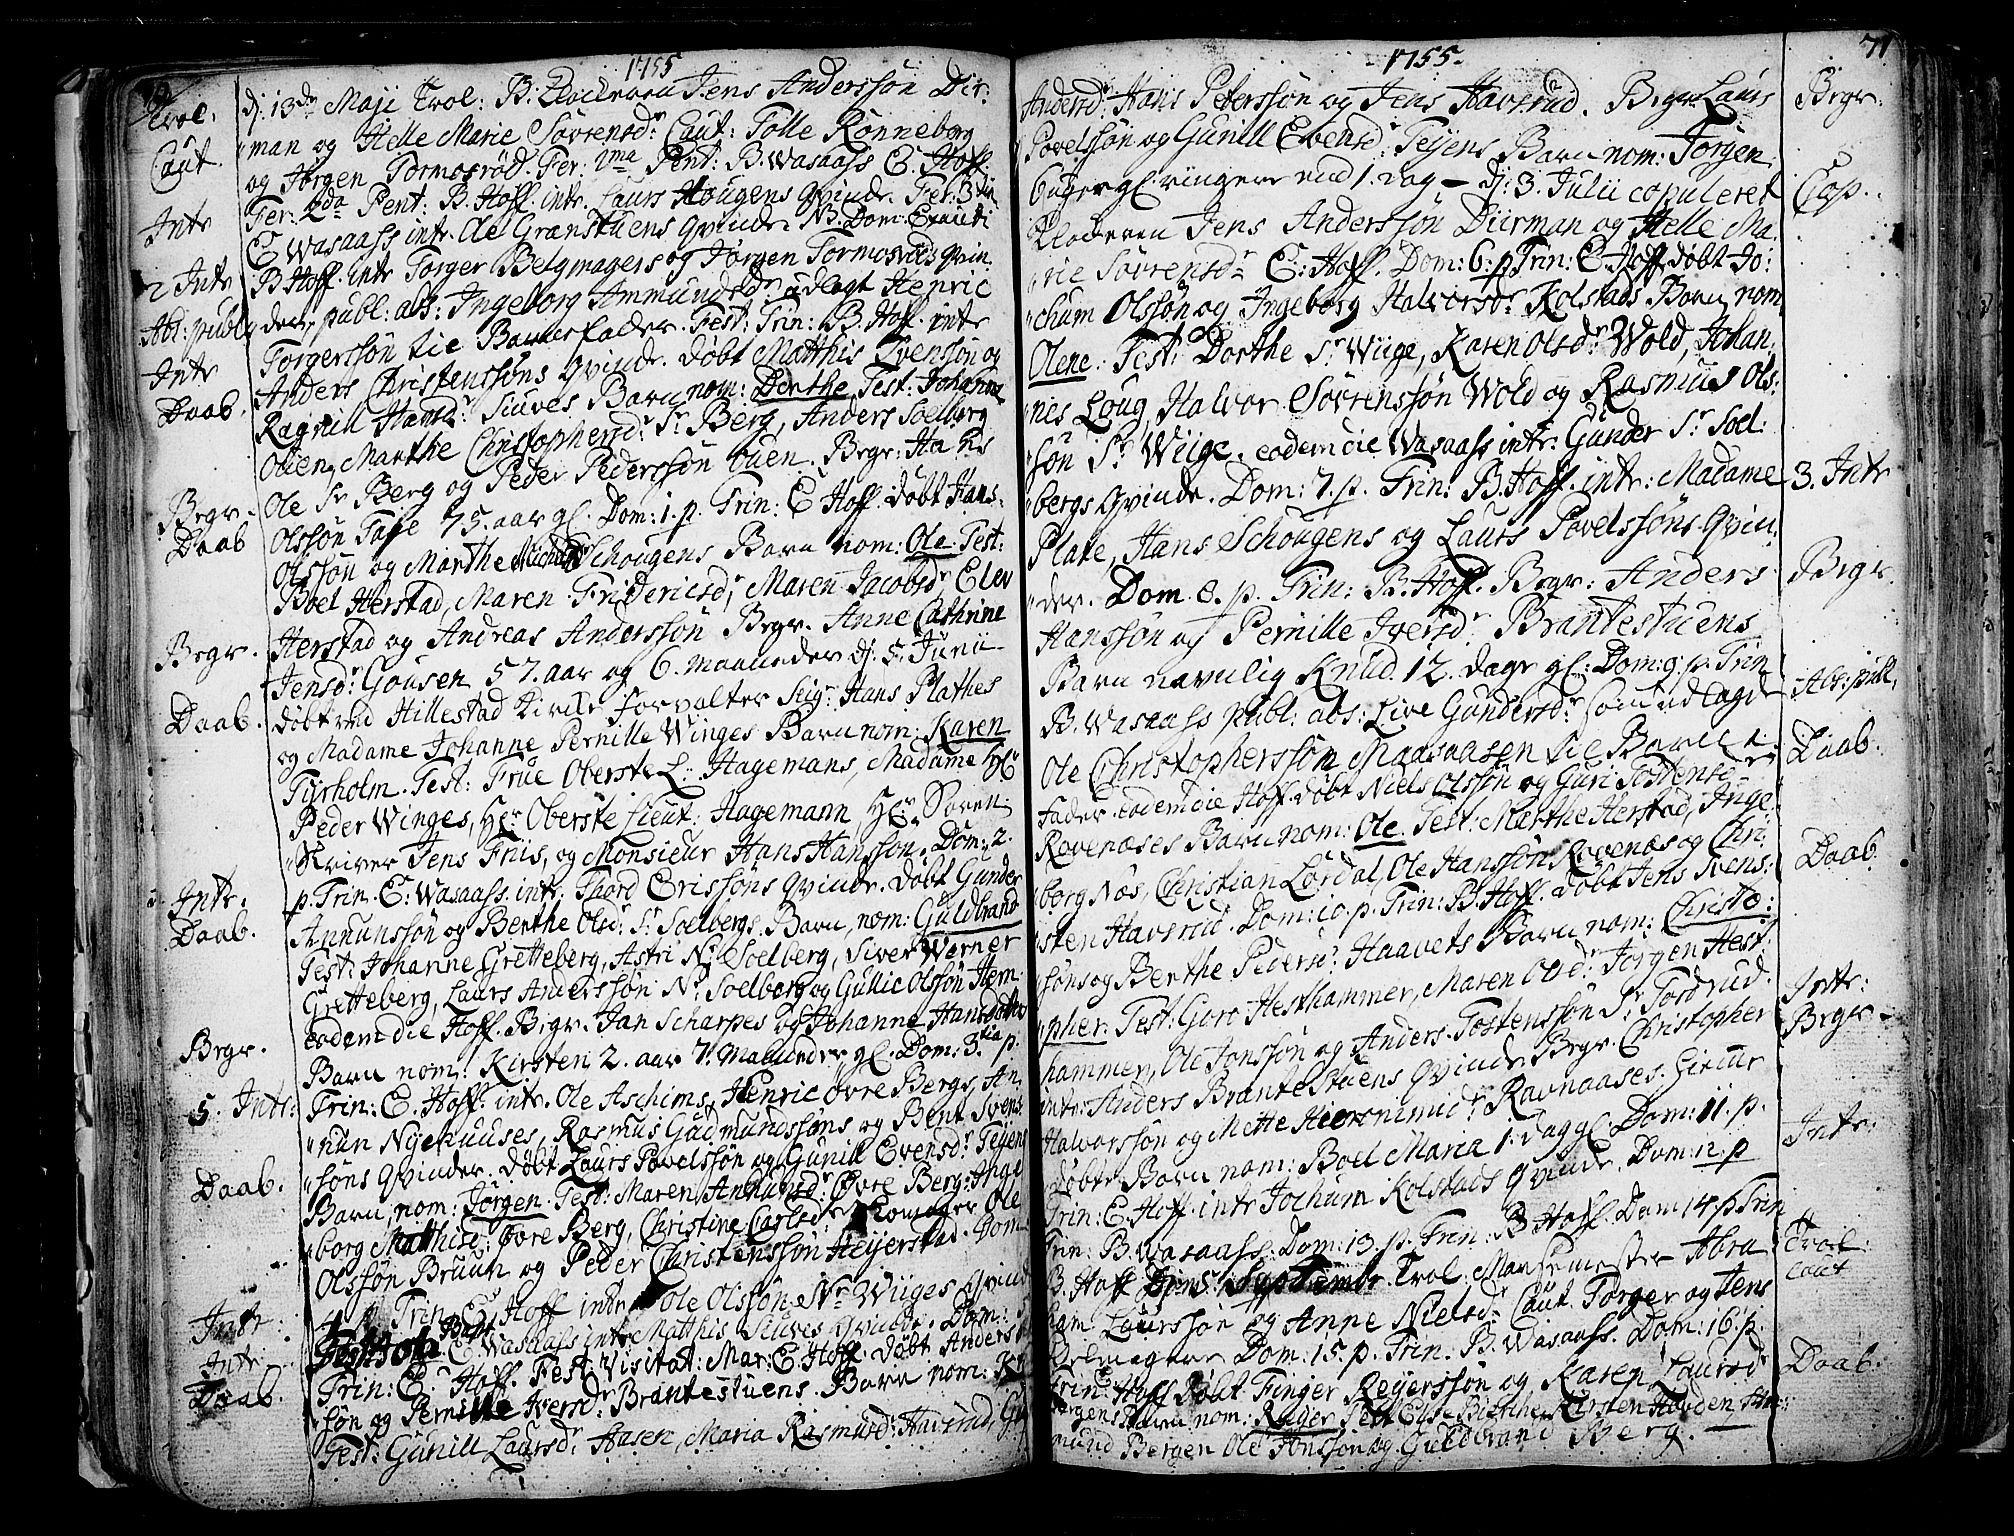 1755
Trol: dj. 13de Maji Trol: B: Klockeren Jens Anderssøn Dir:
Caut man og Helle Marie Sörrensdr Caut: Tolle Rönneborg
og Jörgen Tormosröd. Fer: 1ma Pent: B. Wasaass E. Hoff
Intr Fer. 2da Pent: B. Hoff. intr. Laurs Hougens qvinde. Fer: 3tia
E Wasaass intr. Ole Granstuens qvinde N. Dom: Exaudi
2 Intr B. Hoff. intr Torger Belgmagers og Jörgen Tormosröds qvin
Abs: publ: der, publ: abs: Ingeborg Ammundsdr udlagt Henric
Intr Torgerssøn tie Barnefader. Fest: Trin: B. Hoff. intr
Anders Christenssøns qvinde. døbt Matthis Svenssøn og
Daab. Ragnill Hansdr Siuves Barn nom: Dorthe Test: Johanne
Buen, Marthe Christophersdr Sr Berg, Anders Soelberg
Ole Sr Berg og Peder Pederssøn Buen. Begr: Hans
Begr. Olssøn Faye 75. aar gl. Dom: 1. p. Trin: E Hoff. døbt Hans
Daab Olssøn og Marthe Schougens Barn nom: Ole. Test:
Boel Herstad, Maren Fridericsdr, Maren Jacobsdr Elev
Begr. Herstad og Andreas Anderssøn Begr. Anne Cathrine
Jensdr Gousen 57. aar og 6. maaneder dj. 5. Junii
Daab. døbt ved Hillestad Kirke Forvalter Sigr Hans Plathes
og Madame Johanne Pernille Winges Barn nom: Karen
Tyrholm. Test: Frue Oberste L: Hagemans, Madame Hr
Peder Winges, Hr Oberste Lieut: Hagemann, Hr Soren
Skriver Jens Friis, og Monsieur Hans Hanssøn. Dom: 2.
Intr. p. Trin. E. Wasaass. intr. Thord Erissøns qvinde. døbt Gunder
Daab. Amunssøn og Berthe Olsdr Sr Soelbergs Barn, nom: Guldbrand
Test: Johanne Gretteberg, Astri Nr Soelberg, Siver Werner
Gretteberg, Laurs Anderssøn Nr Soelberg og Gullic Olssøn Hem:
eodem die Hoff. Begr. Jan Scharpes og Johanne Hansdotters
Begr. Barn nom: Kirsten 2. aar 7. Maaneder gl. Dom: 3tia p.
5. Intr: Trin: E. Hoff. intr. Ole Aschims, Henric Øvre Bergs, An
nun Nyehuuses, Rasmus Gudmundssøns og Bent Svens
søns qvinder. døbt Laurs Povelssøn og Gunill Evensdr Teijens
Daab. Barn, nom: Jörgen. Test: Maren Anunsdr Øvre Berg. Inge
borg Mathisdr Øvre Berg, Christine Carlsdr Ole
Olssøn Bruun og Peder Christenssøn Heijerstad. Dom
Intr: Trin: E. Hoff intr. Ole Olssøn Nr Wiiges qvinde
Intr. E. Wasaass intr: Matthis Siuves qvinde. Dom: 5
Daab. Trin: E. Hoff. Fest: Visitat: Mar: E. Hoff. døbt Anders
søn og Pernille Iversdr Brantestuens Barn nom:
Test: Gunill Laursdr Aasen, Maria Rasmusdr Haverud,
1755. 71
Andersdr Hans Peterssøn og Jens Havsrud. Begr. Laurs Begr:
Povelssøn og Gunill Evensdr Teijens Barn nom: Jörgen
6 uger gl: ringere end 1. dag — dj: 3. Julii copuleret Cop.
Klockeren Jens Anderssøn Diirman og Helle Ma:
rie Sörrensdr E: Hoff. Dom: 6. p Trin: E. Hoff døbt Jo:
chum Olssøn og Ingeborg Halvorsdr Kolstads Barn nom
Olene. Test: Dorthe Sr Wiige, Karen Olsdr Wold, Johan
nes Loug, Halvor Sörrenssøn Wold og Rasmus Ols:
søn Sr Wiige. eodem die Wasaass intr: Gunder Sr Soel:
bergs qvinde. Dom: 7. p. Trin: B. Hoff. intr: Madame 3. Intr
Plate, Hans Schougens og Laurs Povelssøns qvin:
der. Dom. 8. p. Trin: B. Hoff. Begr: Anders Begr.
Hanssøn og Pernille Iversdr Brantestuens
Barn navnlig Knud. 12. dage gl: Dom: 9: p. Trin
B. Wasaass publ: abs: Live Gundersdr som udlagde Abs: publ.
Ole Christopherssøn Maasaasen tie Barne
Fader. eodem die Hoff. døbt Niels Olssøn og Guri Tostensdr Daab.
Rovenæses Barn nom: Ole. Test: Marthe Herstad, Inge
borg Nøs, Christian Lördal, Ole Hanssøn Rovenæs og Chri:
sten Havsrud. Dom: 10. p. Trin: B. Hoff. Døbt Jens Svens: Daab.
søns og Berthe Pedersdr Haavets Barn nom: Christo:
pher. Test: Goro Hesthammer, Maren Olsdr Jörgen Hest
hammer, Ole Jonssøn og Anders Tostenssøn Sr Tordrud.
intr: Anders Brantestuens qvinde Begr. Christopher Intr: Begr.
Halvorssøn og Mette Hieronimidr Ravnaases
døbte Barn nom: Boel Maria 1. dag gl Dom: 11. p.
Trin: E. Hoff. intr Jochum Kolstads qvinde. Dom: 12. p Intr:
Trin: B. Wasaass. Dom: 13. p. Trin: B. Hoff. Dom 14. p Trin
B. Hoff Septembr Trol: Marsemester Abra Trol:
ham Laurssøn og Anne Nielsdr Caut. Torger og Jens Caut
Belmager Dom: 15. p. Trin. B. Wasaass. Dom: 16. p.
Trin: Hoff Døbt Finger Reijerssøn og Karen Laursdr Daab.
Bergens Barn nom: Reijer Test Else Kirsten Hovden,
mund Bergen Ole Jonssøn og Guldbrand Berg. —